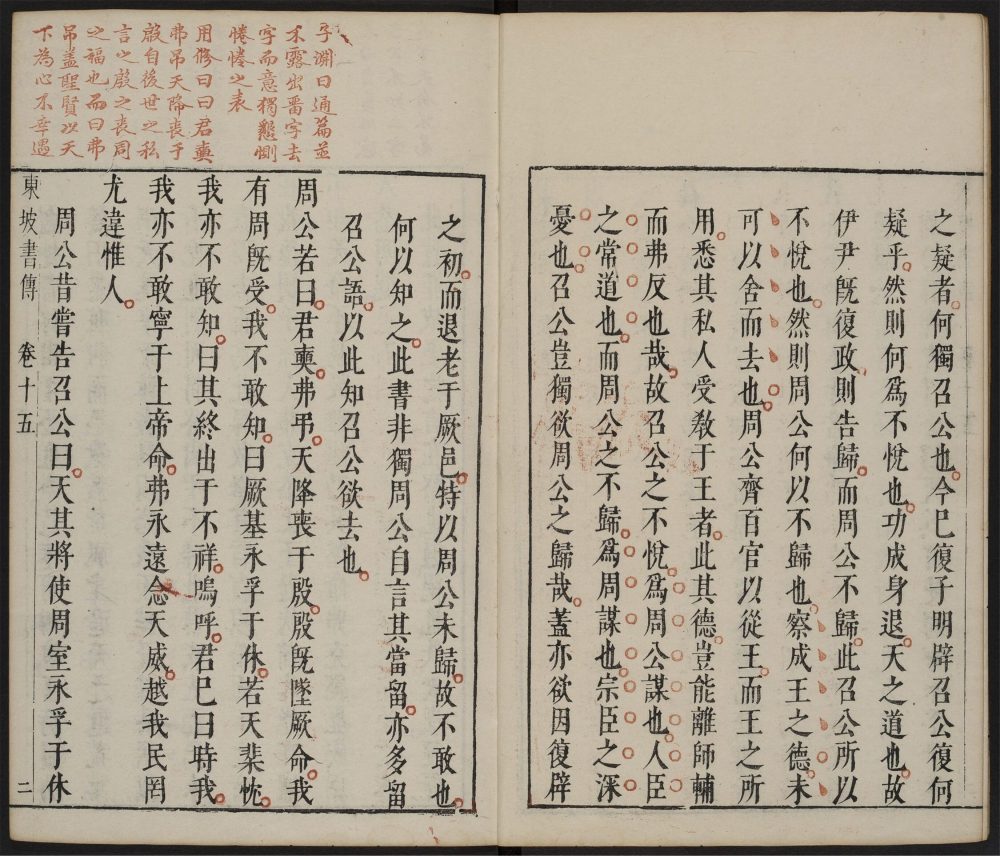 之疑者何獨召公也今已復子明辟召公復何
疑乎然則何爲不悅也功成身退天之道也故
伊尹旣復政則告歸而周公不歸此召公所以
不悅也然則周公何以不歸也察成王之德未
可以舍而去也周公齊百官以從王而王之所
用悉其私人受敎于王者此其德豈能離師輔
而弗反也哉故召公之不悅爲周公謀也人臣
之常道也而周公之不歸爲周謀也宗臣之深
憂也召公豈獨欲周公之歸哉蓋亦欲因復辟
之初而退老于厥邑特以周公未歸故不敢也
何以知之此書非獨周公自言其當留亦多留
召公語以此知召公欲去也
周公若曰君奭弗弔天降喪于殷殷旣墜厥命我
有周旣受我不敢知曰厥基永孚于休若天棐忱
我亦不敢知曰其終出于不祥嗚呼君已曰時我
我亦不敢寧于上帝命弗永遠念天威越我民罔
尤違惟人
周公昔嘗告召公曰天其將使周室永孚于休
東坡書傳 卷十五 二
子淵曰通篇並
不露出畱字去
字而意獨懇惻
惓惓之表
用修曰曰君奭
弗吊天降喪于
殷自後世之私
言之殷之喪周
之福也而曰弗
吊蓋聖賢以天
下為心不幸遇